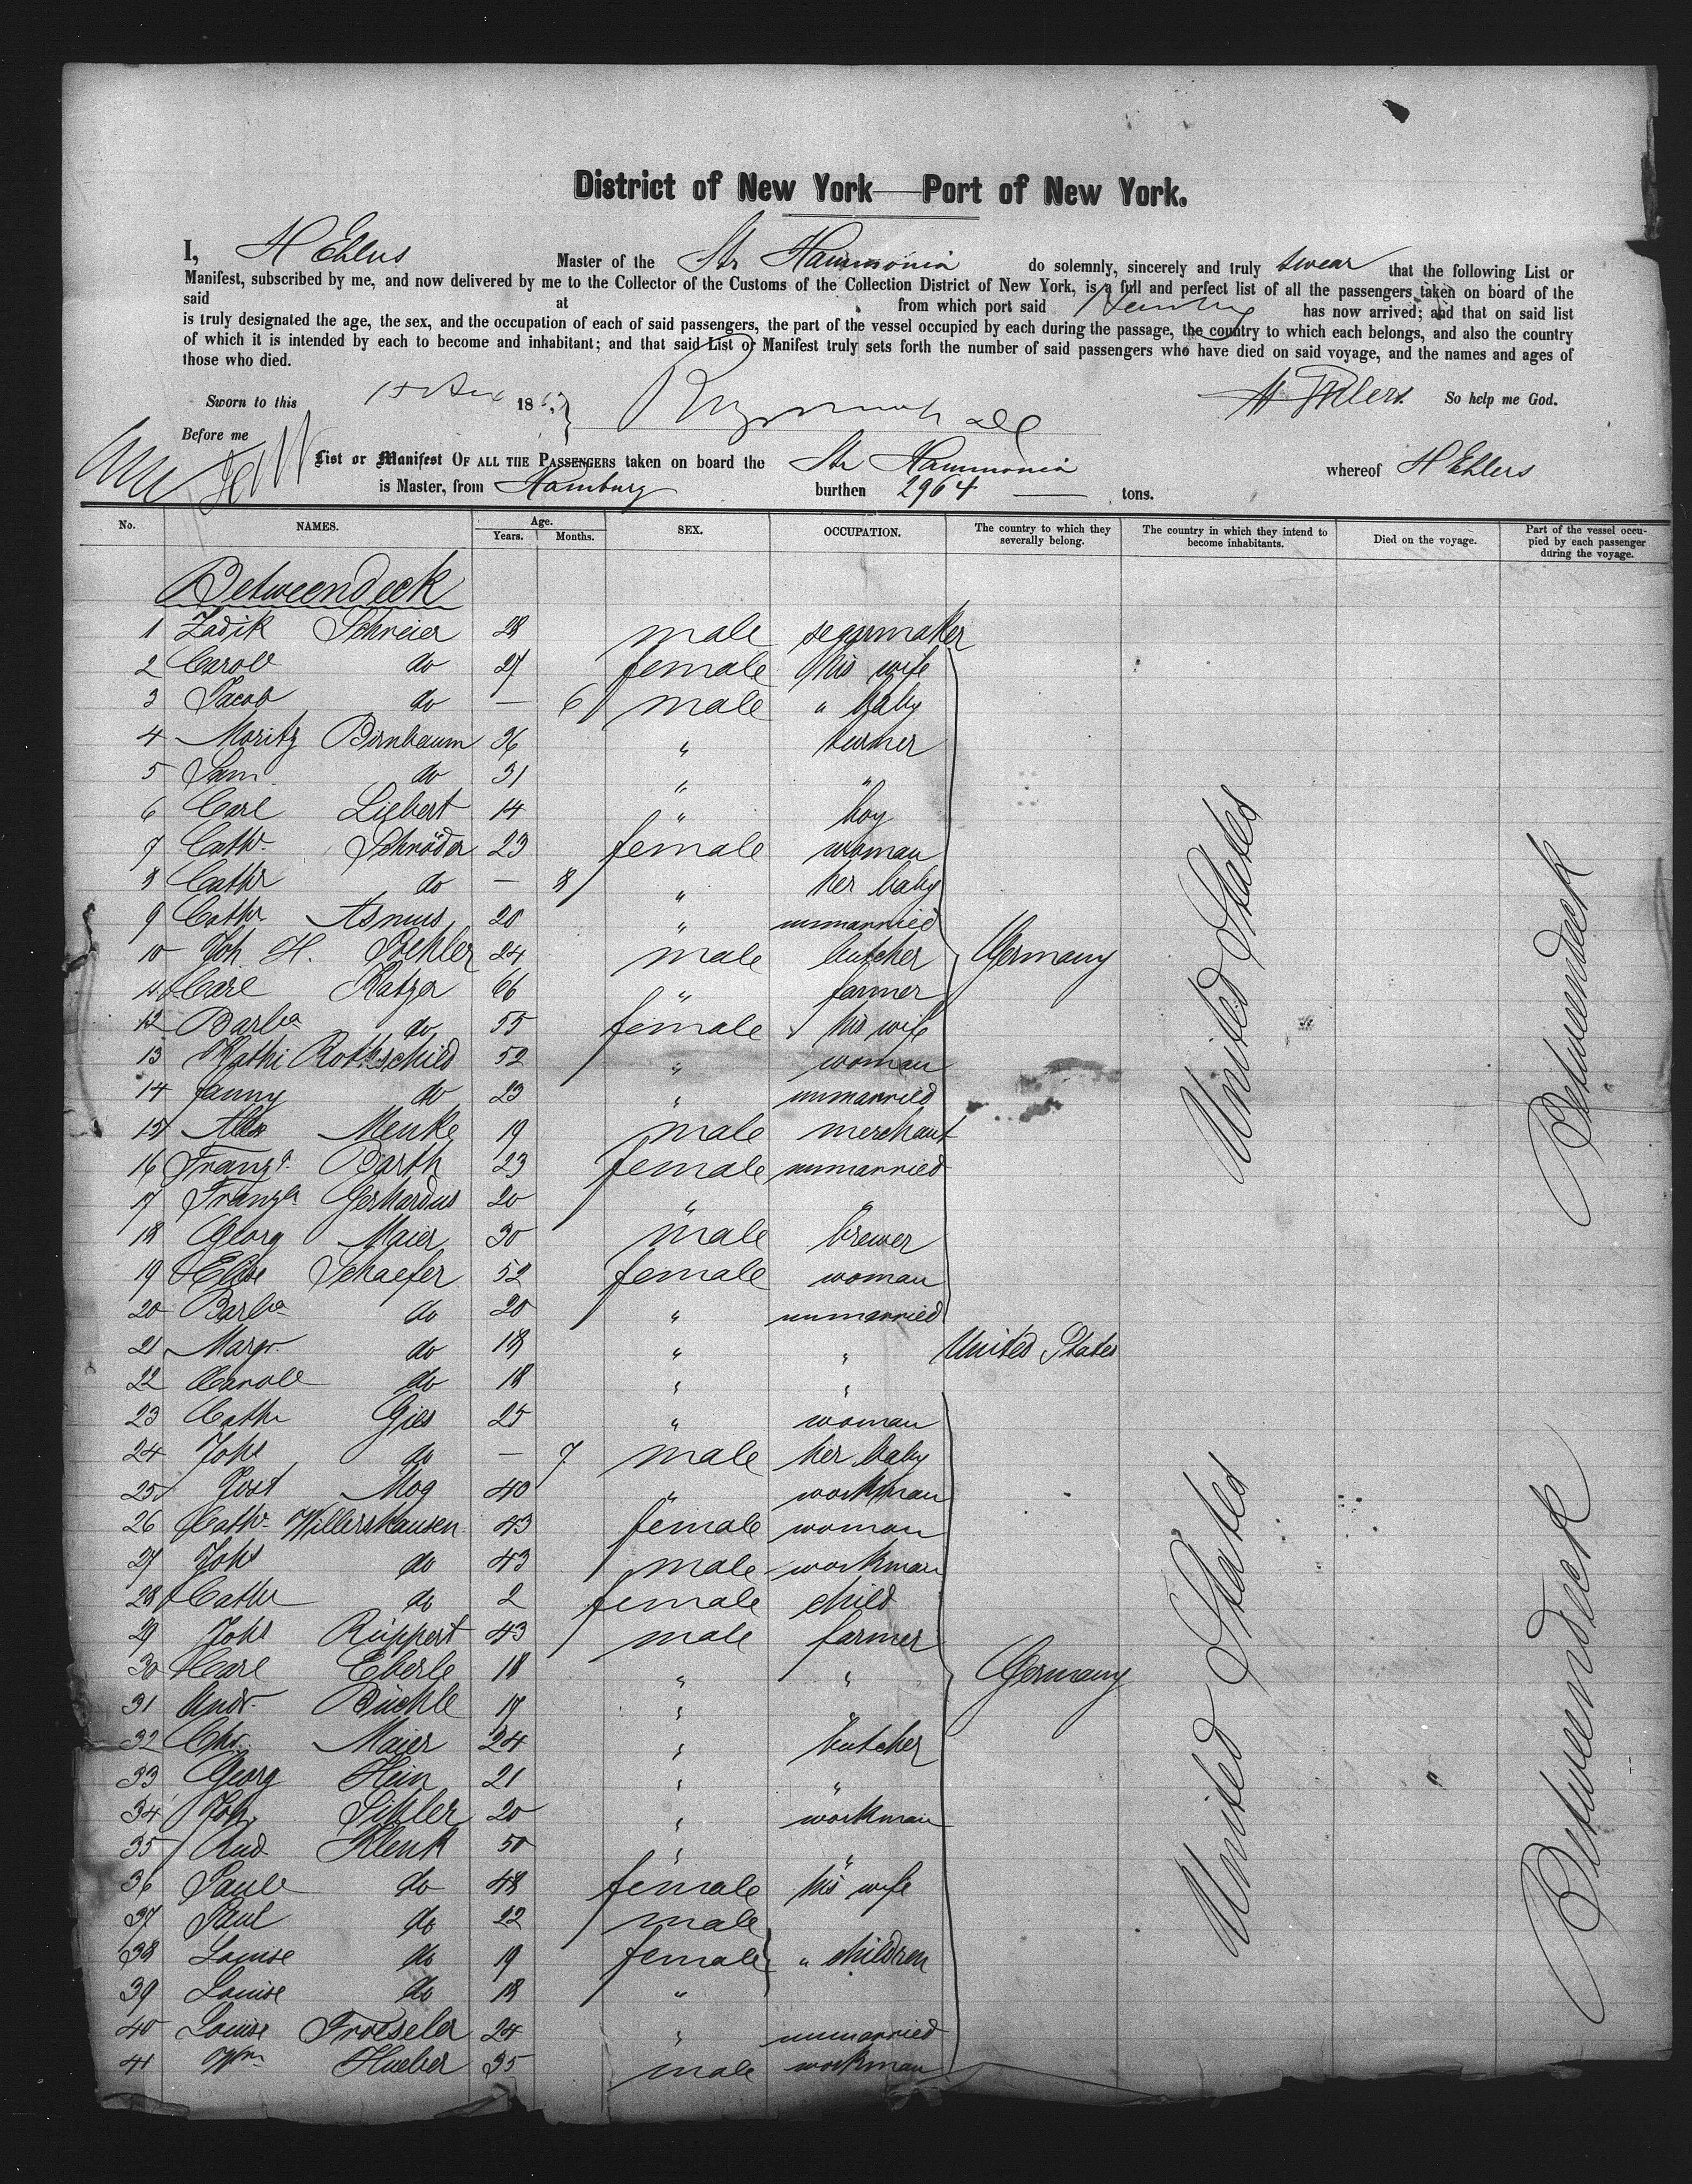 District of New York — Port of New York.
I, H Ehlers Master of the Str Hammonia do solemnly, sincerely and truly swear that the following List or
Manifest, subscribed by me, and now delivered by me to the Collector of the Customs of the Collection District of New York, is a full and perfect list of all the passengers taken on board of the
said at from which port said has now arrived; and that on said list
is truly designated the age, the sex, and the occupation of each of said passengers, the part of the vessel occupied by each during the passage, the country to which each belongs, and also the country
of which it is intended by each to become and inhabitant; and that said List or Manifest truly sets forth the number of said passengers who have died on said voyage, and the names and ages of
those who died.
Sworn to this 18 H Ehlers So help me God.
Before me
List or Manifest OF ALL THE PASSENGERS taken on board the Str Hammonia whereof H Ehlers
is Master, from Hamburg burthen 2964 — tons.
No. NAMES. Age. Years. Months. SEX. OCCUPATION. The country to which they severally belong. The country in which they intend to become inhabitants. Died on the voyage. Part of the vessel occupied by each passenger during the voyage.
Betweendeck
1 Zadik Schreier 28 male segarmaker
2 Carol do 27 female his wife
3 Jacob do — 6 male " baby
4 Moritz Birnbaum 36 " turner
5 Sam do 31 " "
6 Carl Liebert 14 " boy
7 Cathr Schröder 23 female woman
8 Cathr do — 8 " her baby
9 Cathr Asmus 20 " unmarried
10 Joh H. 24 male butcher Germany
11 Carl Katzer 66 " farmer
12 Barba do 55 female his wife
13 Kathi Rothschild 52 " woman
14 Fanny do 23 " unmarried
15 Alex Menke 19 male merchant
16 Franza Barth 23 female unmarried
17 Franza Gerhardus 20 " "
18 Georg Maier 30 male brewer
19 Elise Schaefer 52 female woman
20 Barba do 20 " unmarried
21 Margr do 18 " " United States
22 Carole do 18 " "
23 Cathr Gies 25 " woman
24 Johs do — 7 male her baby
25 Jost Mog 40 " workman
26 Cathr Willershausen 43 female woman
27 Johs do 43 male workman
28 Cathr do 2 female child
29 Johs Rüppert 43 male farmer
30 Carl Eberle 18 " " Germany
31 Andr. Büchle 17 " "
32 Chr. Maier 24 " butcher
33 Georg Hein 21 " "
34 Joh. Sihler 20 " workman
35 Rud Klenk 50 " "
36 Paule do 48 female his wife
37 Paul do 22 male
38 Louise do 19 female " children
39 Louise do 18 "
40 Louise Froeseler 24 " unmarried
41 Wm Hueber 35 male workman
United States
Betweendeck
United States
Betweendeck